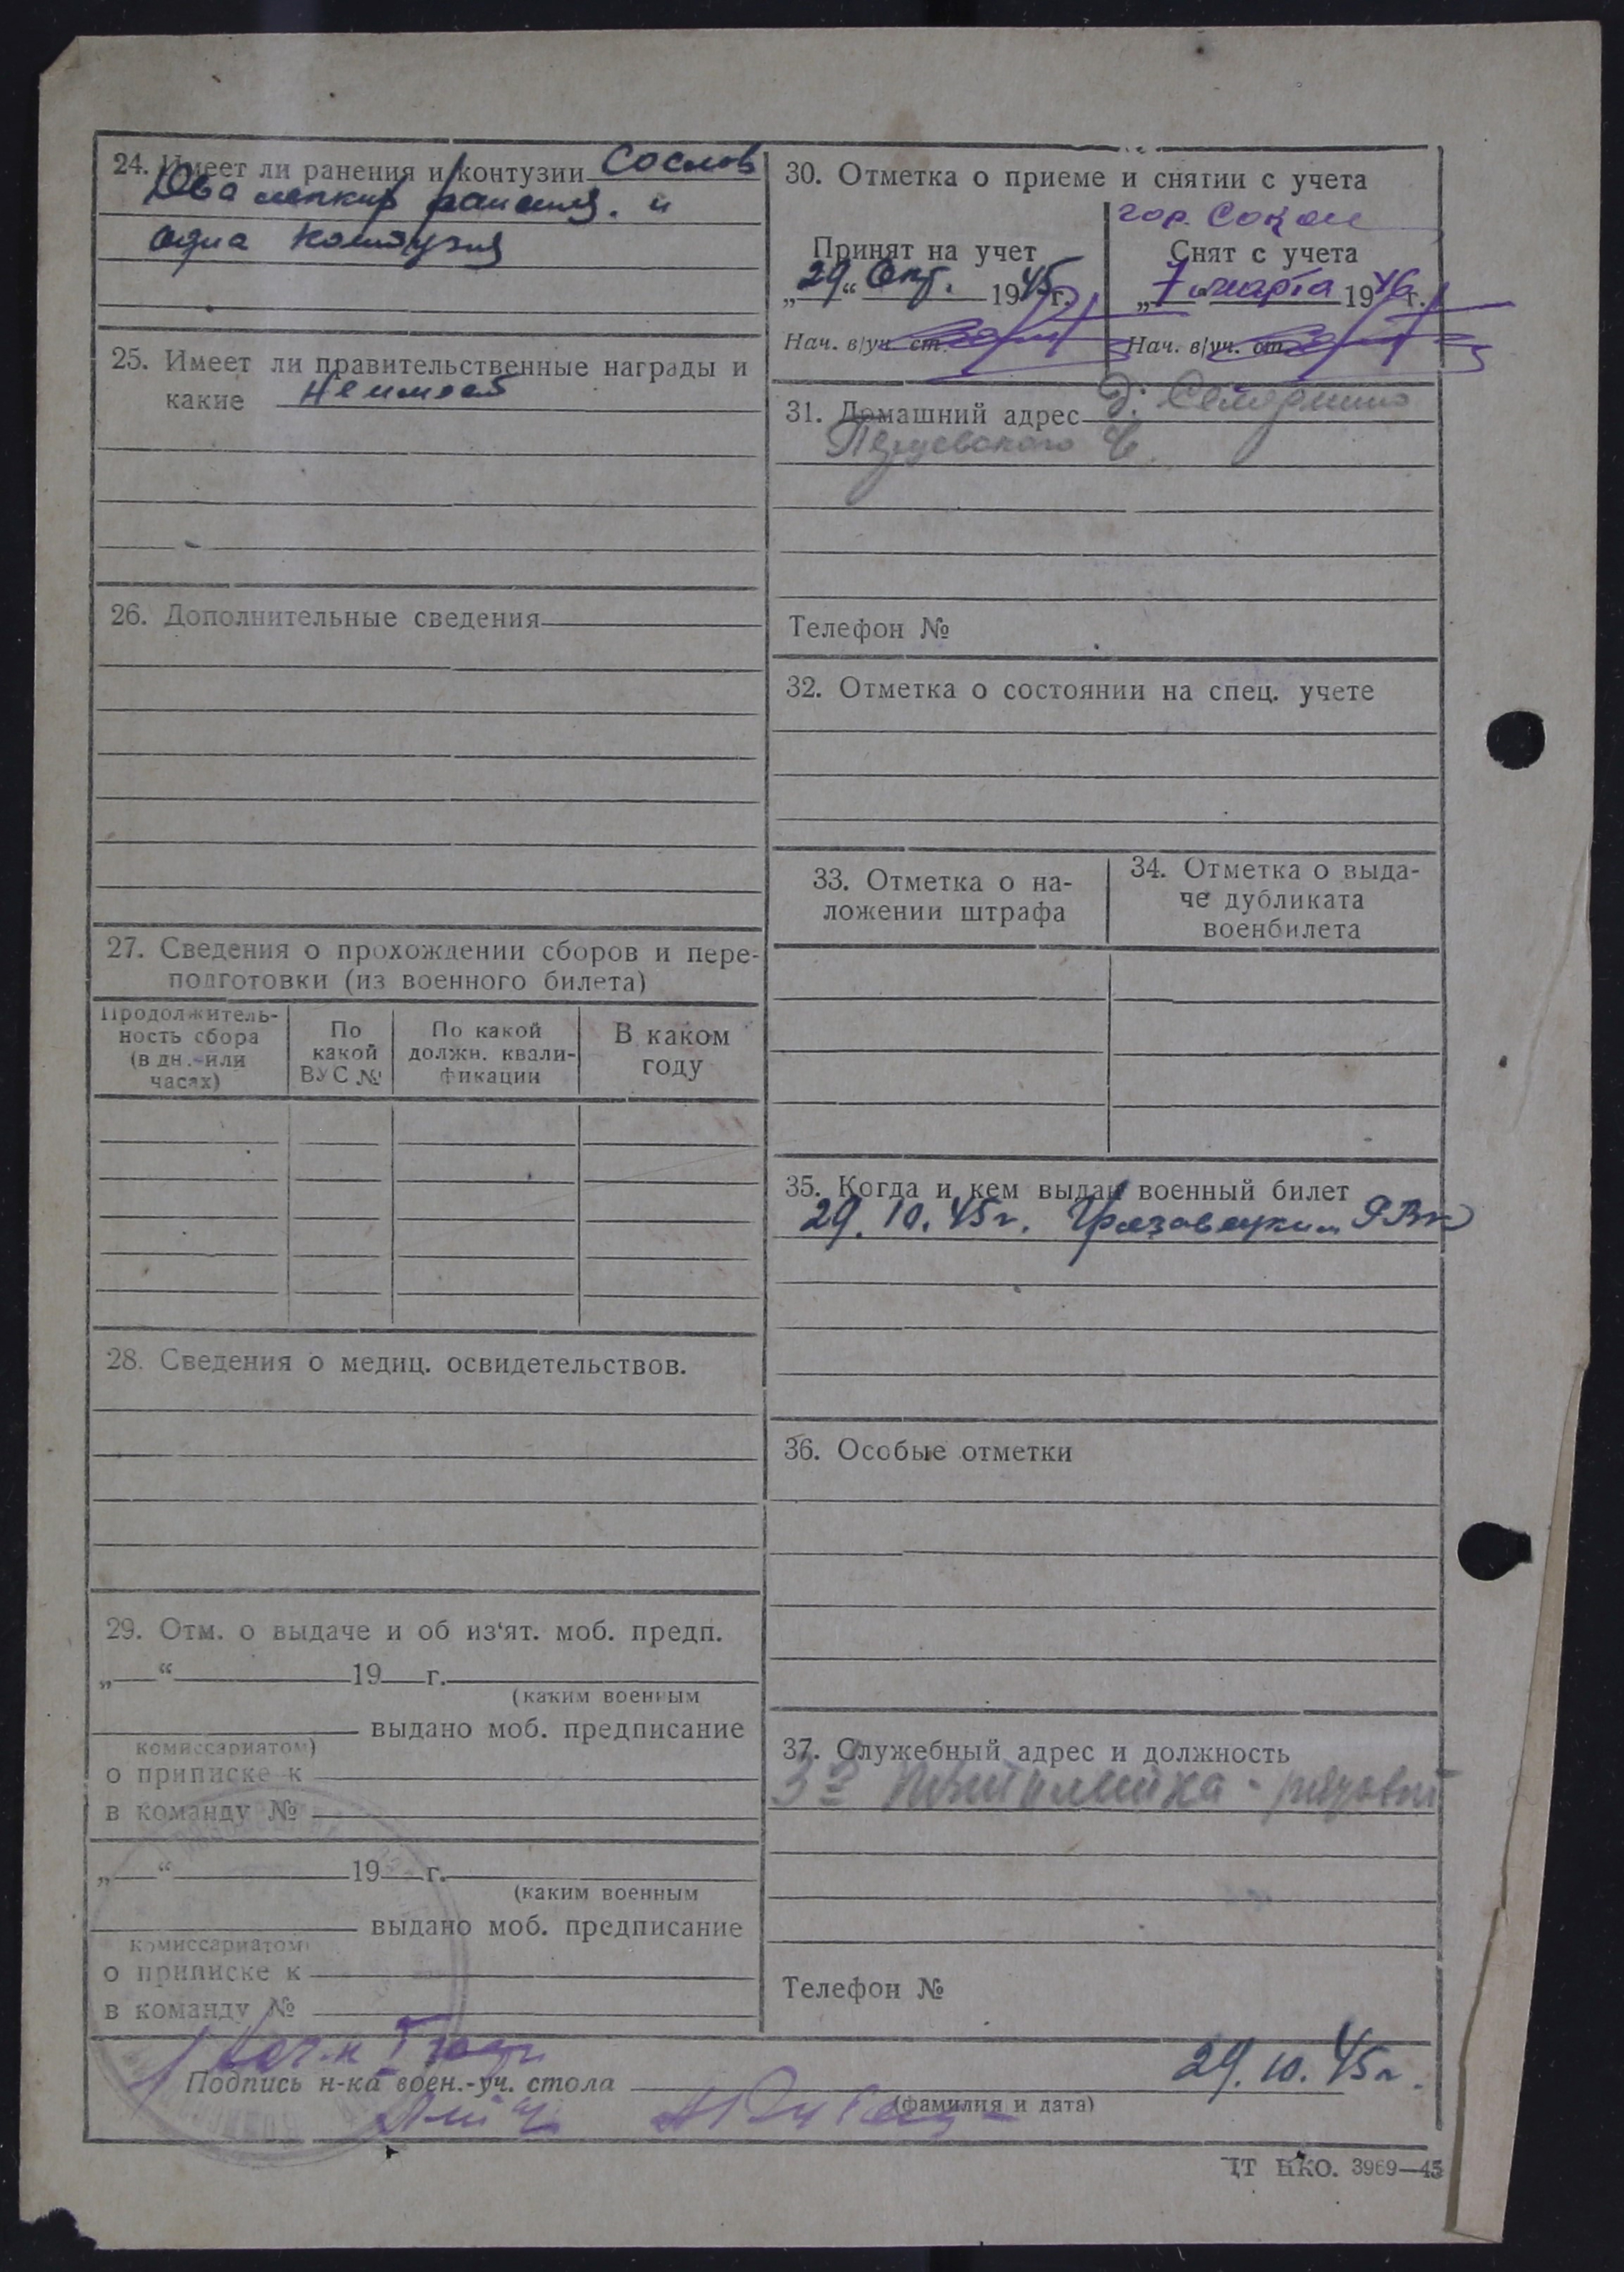 24. Имеет ли ранения и контузии со слов
Два легких ранения. и
одна контузия
25. Имеет ли правительственные награды и
какие Не имеет
26. Дополнительные сведения
27. Сведения о прохождении сборов и пере-
подготовки (из военного билета)
Продолжитель-
ность сбора
(в дн. или
часах)
По
какой
ВУС №
По какой
должн. квали-
фикации
В каком
году
28. Сведения о медиц. освидетельствов.
29. Отм. о выдаче и об из‘ят. моб. предп.
„ “ 19 г.
(каким военным
выдано моб. предписание
комиссариатом)
о приписке к
в команду №
„ “ 19 г.
(каким военным
выдано моб. предписание
комиссариатом)
о приписке к
в команду №
30. Отметка о приеме и снятии с учета
гор. Сокол
Принят на учет
„29“ Окт. 1945 г.
Нач. в/уч. ст.
Снят с учета
„7“ марта 1946 г.
Нач. в/уч. ст.
31. Домашний адрес д.
Телефон №
32. Отметка о состоянии на спец. учете
33. Отметка о на-
ложении штрафа
34. Отметка о выда-
че дубликата
военбилета
35. Когда и кем выдан военный билет
29.10.45г. Грязовецким РВК
36. Особые отметки
37. Служебный адрес и должность
рядовой
Телефон №
Подпись н-ка воен.-уч. стола
29.10.45г.
(фамилия и дата)
ЦТ НКО. 3969—45